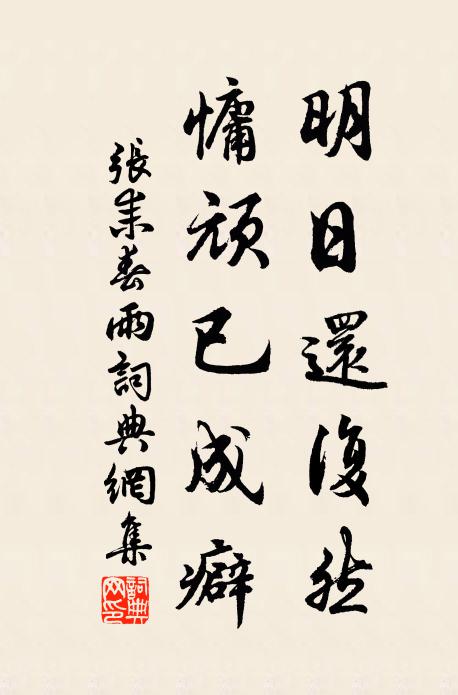 明日還復然
慵頑已成癖
張耒春雨詞典網集
詞典
网印